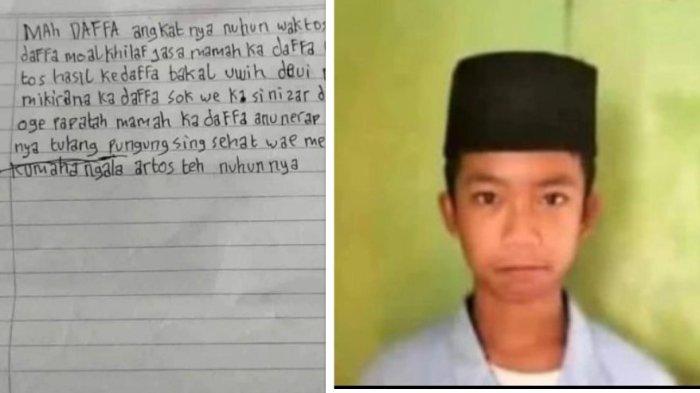 MAh DAFFA angkat nya nuhun waktos
daffa moal khilaf jasa mamah ka daffa
tos hasil ke daffa bakal uwih deui
mikirana ka daffa sok we ka si nizar
oge papatah mamah ka daffa anu nerap
nya tulang pungung sing sehat wae me
kumaha ngala artos teh nuhun nya